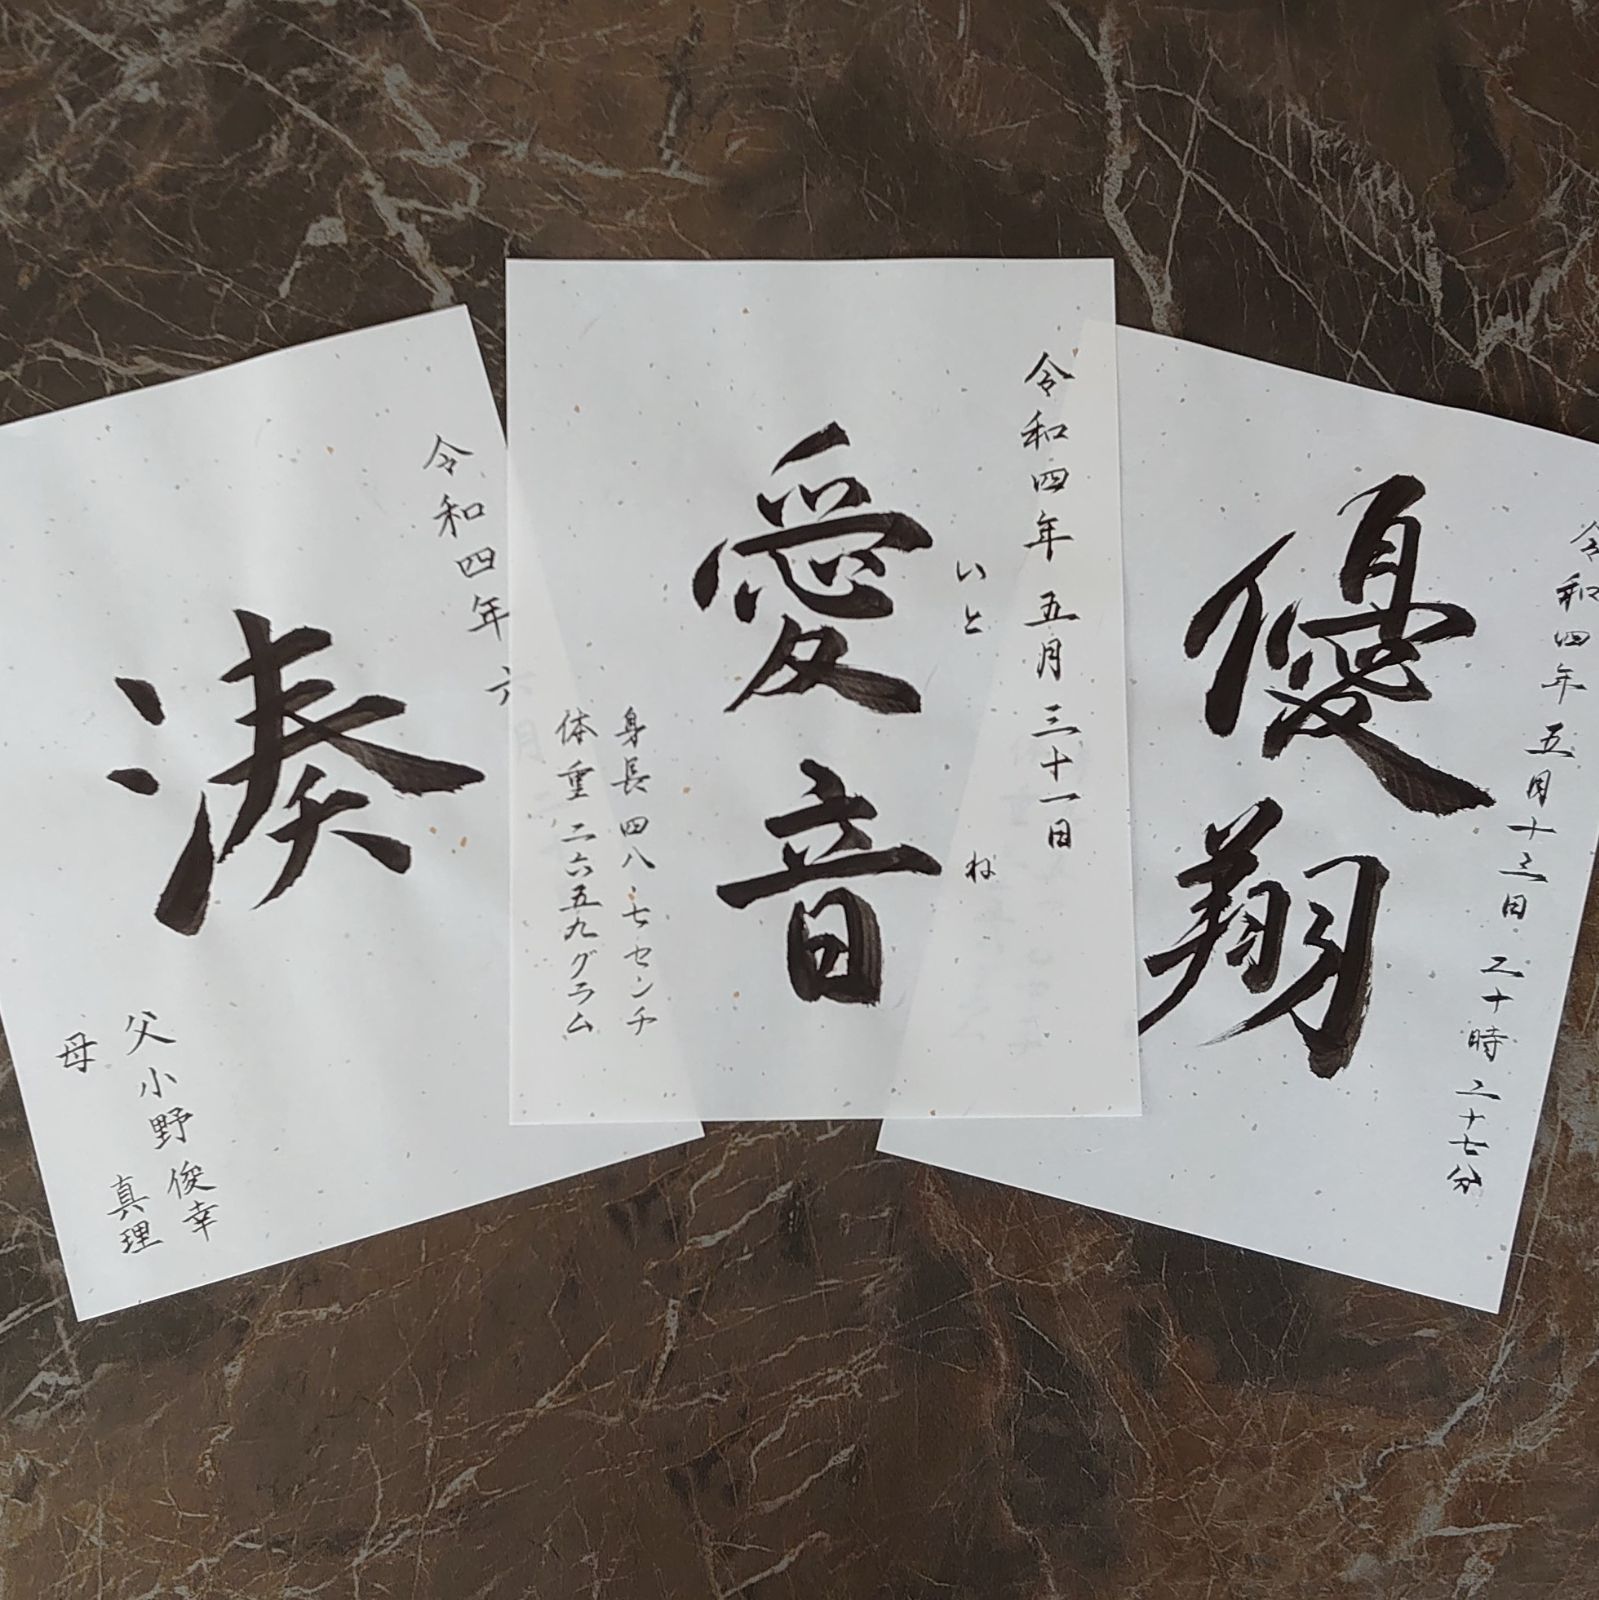 令和四年五月十三日 二十時二十七分
優翔
令和四年五月三十一日
いとね
愛音
身長四八.七センチ
体重二六五九グラム
令和四年六月
湊
父 小野俊幸
母 真理